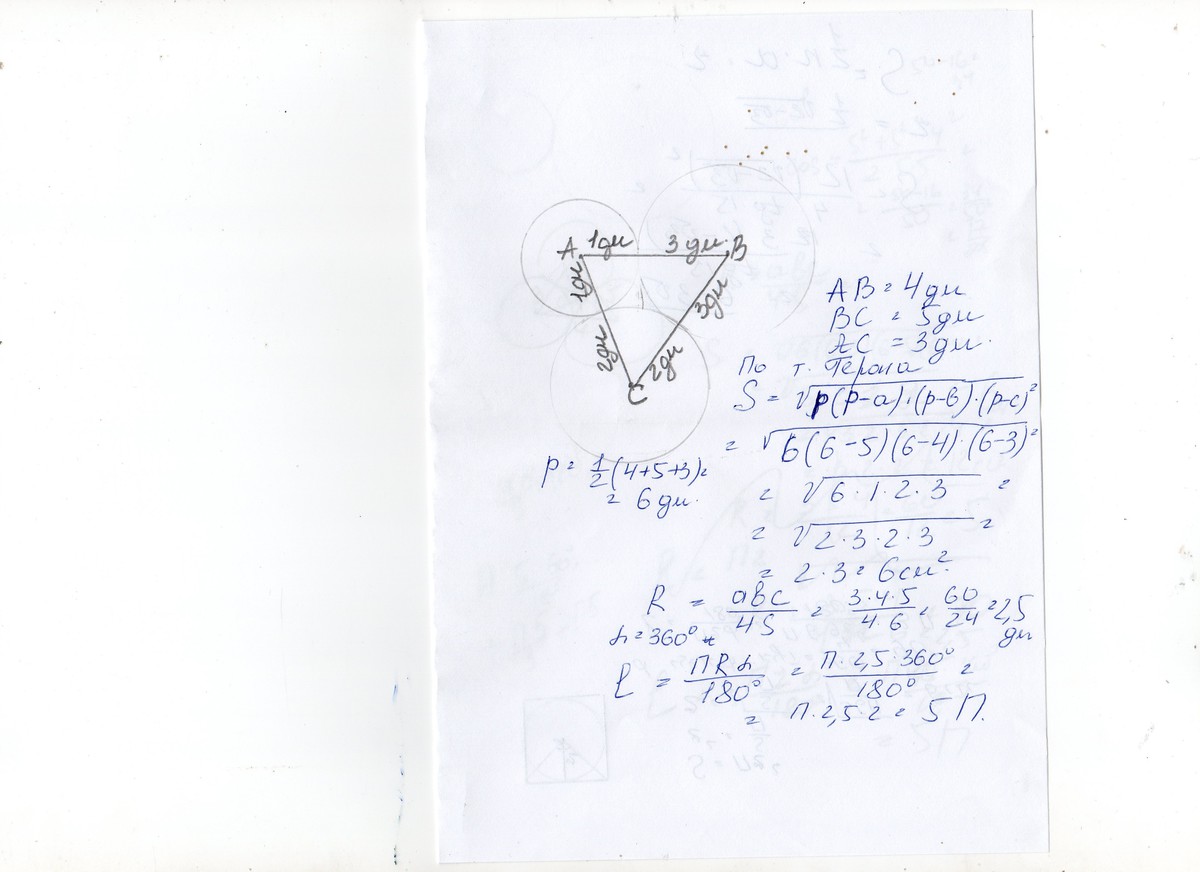 A 1дм 3 дм. B
1дм 3дм
2дм 2дм
C
AB = 4дм
BC = 5дм
AC = 3дм.
По т. Герона
S = √p(p-a)·(p-b)·(p-c) =
= √6(6-5)(6-4)·(6-3) =
p = 1/2 (4+5+3) =
= 6дм.
= √6·1·2·3 =
= √2·3·2·3 =
= 2·3 = 6см².
R = abc/4S = 3·4·5/4·6 = 60/24 = 2,5 дм
α = 360°
ℓ = ПRα/180° = П·2,5·360°/180° =
= П·2,5·2 = 5П.